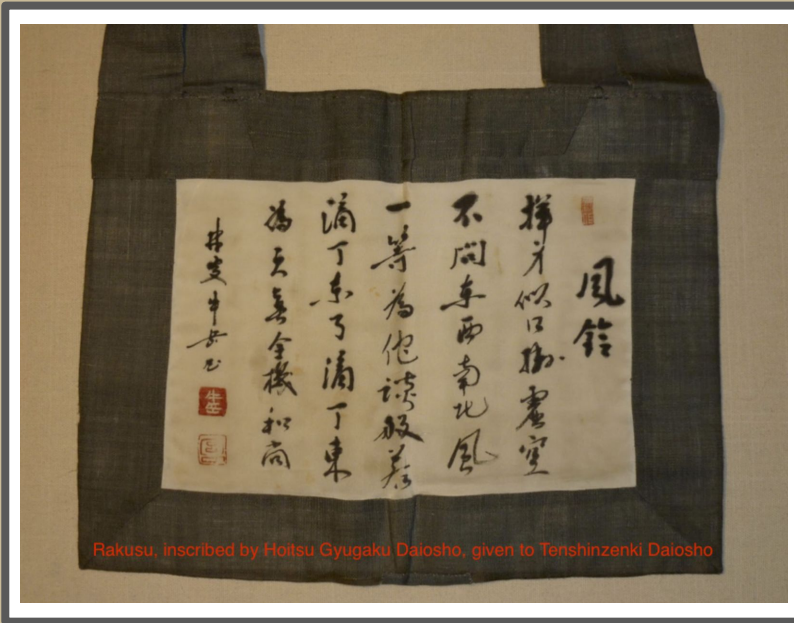 風鈴
渾身似口掛虚空
不問東西南北風
一等為他談般若
滴丁東了滴丁東
為天真全機和尚
林叟牛岳
牛岳
Rakusu, inscribed by Hoitsu Gyugaku Daiosho, given to Tenshinzenki Daiosho